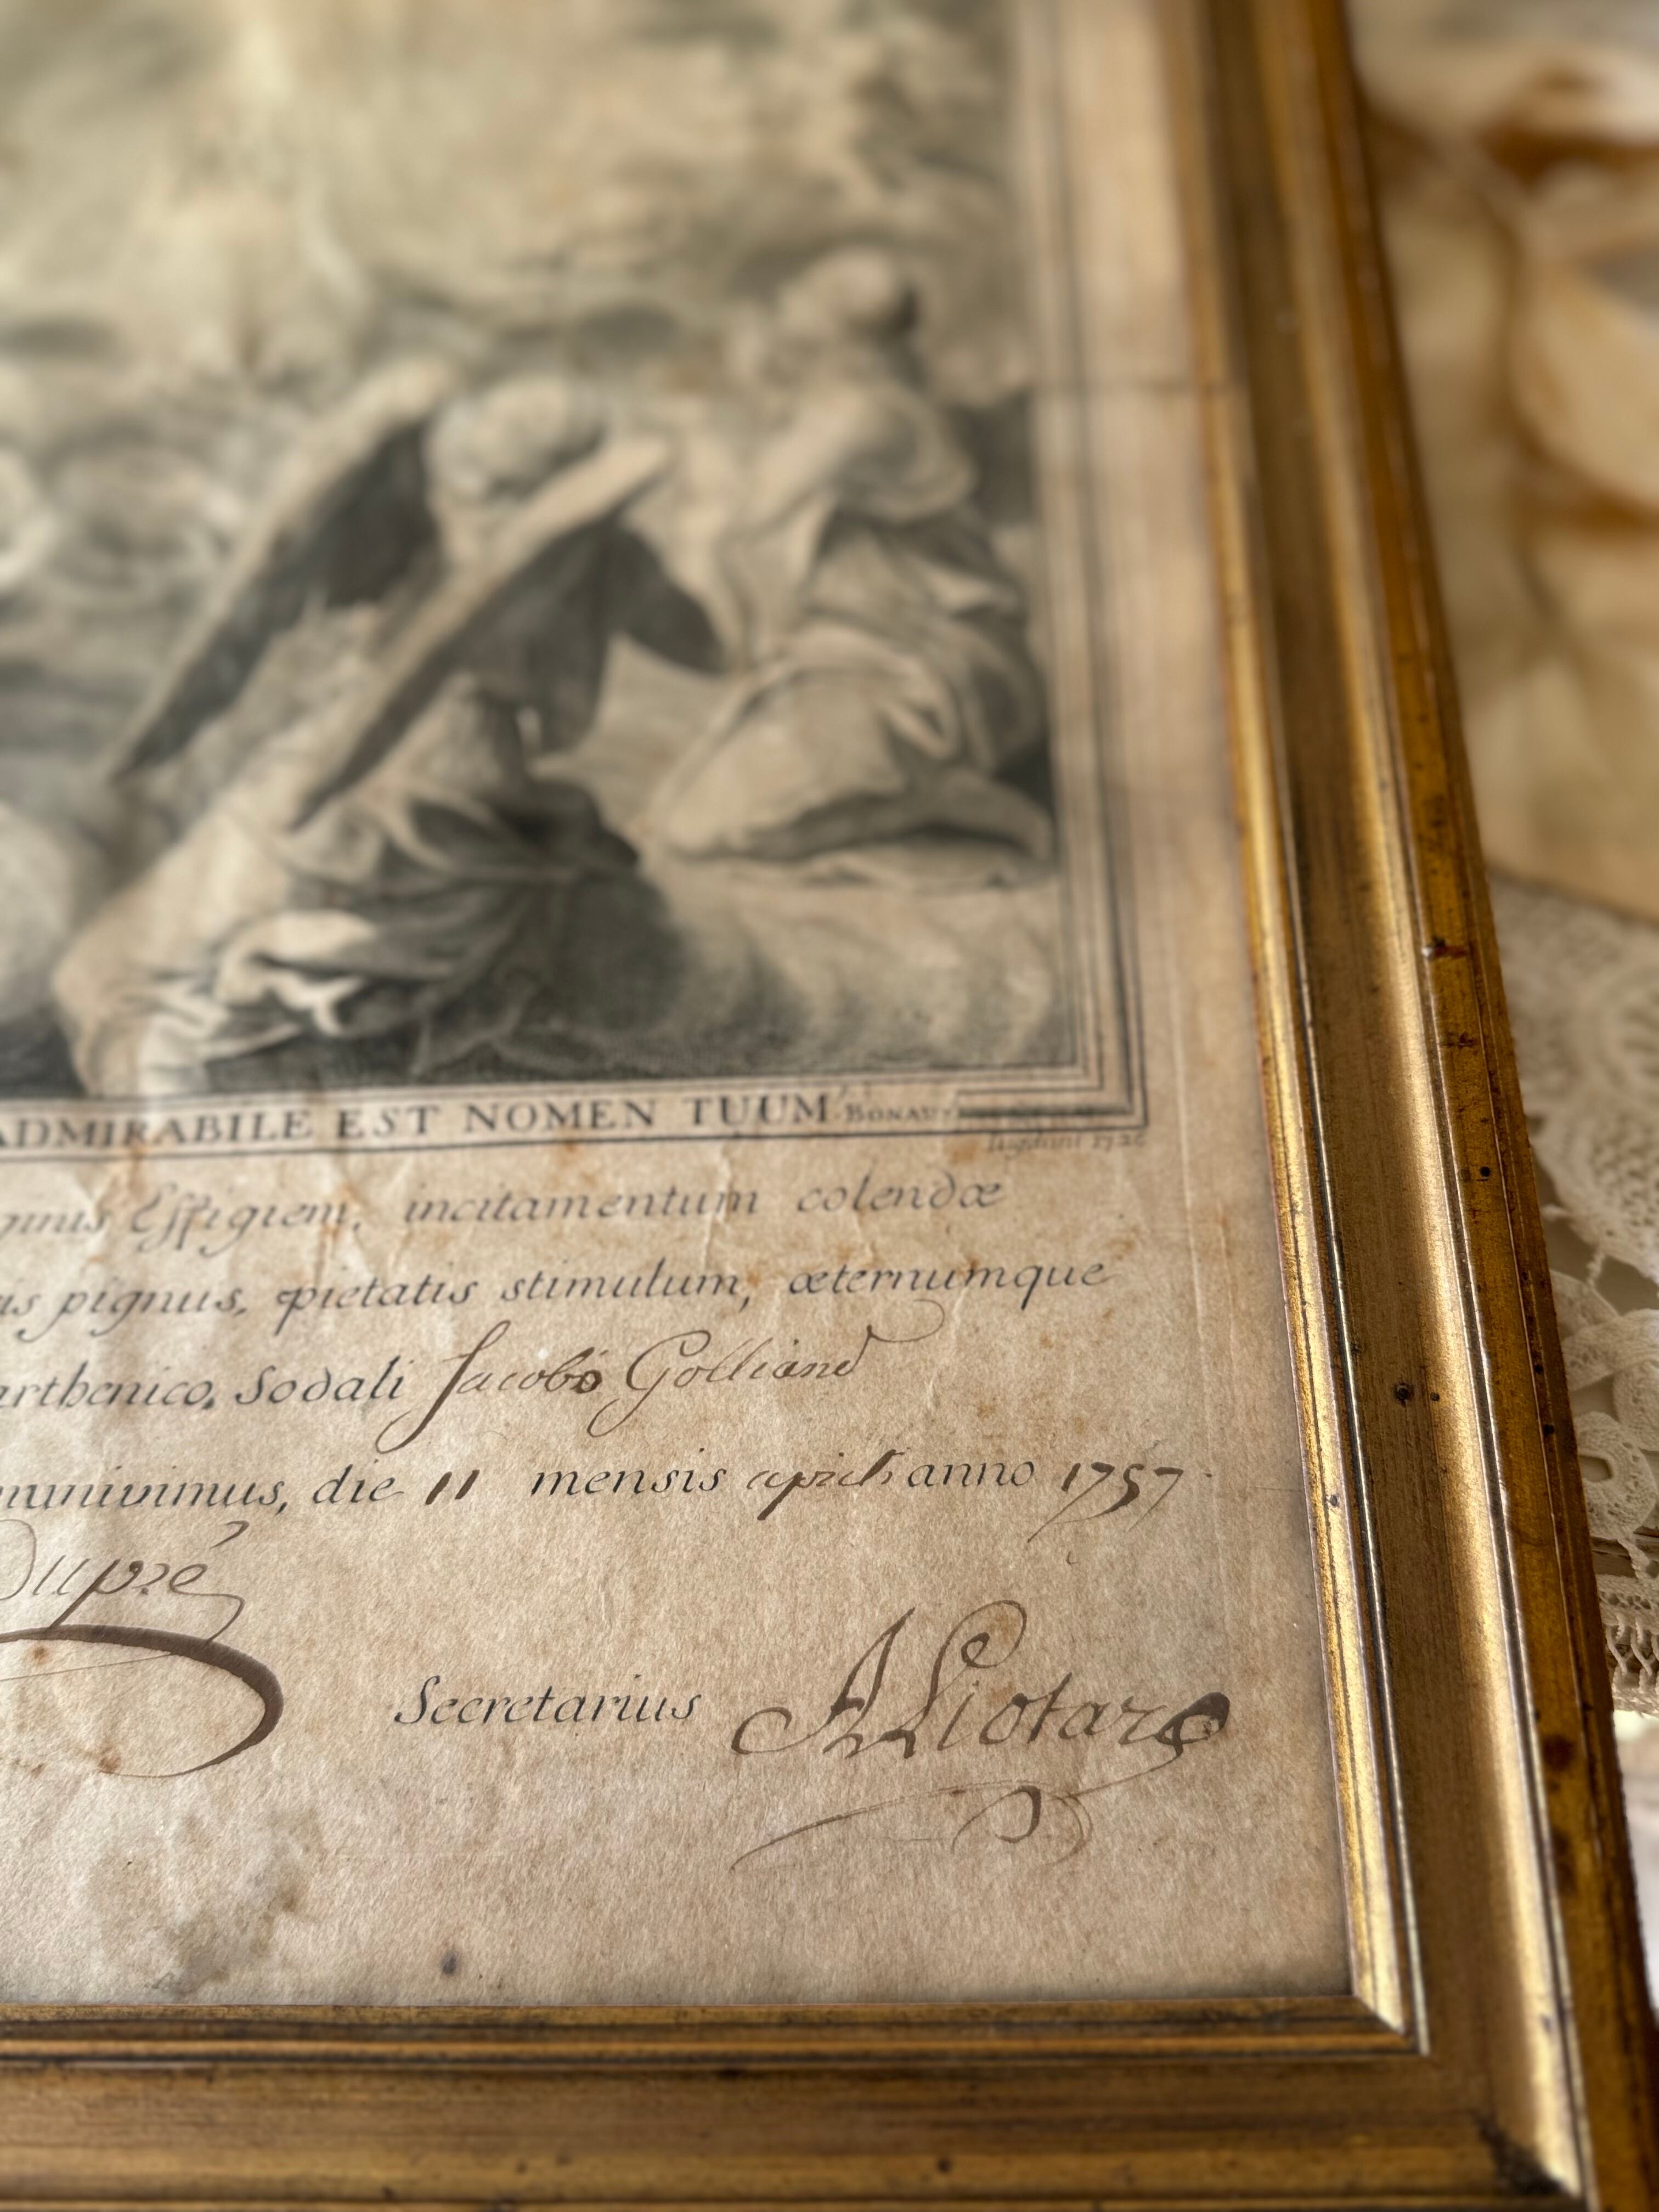 ADMIRABILE EST NOMEN TUUM. BONAV
Lugduni 1726
Effigiem, incitamentum colendæ
pignus, pietatis stimulum, æternumque
arthenico, Sodali Jacobo Golliand
munivimus, die 11 mensis aprilis anno 1757
Dupré
Secretarius J. Liotard